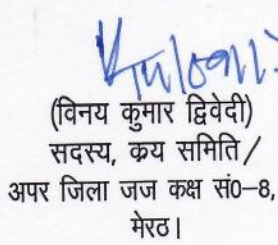 (विनय कुमार द्विवेदी)
सदस्य, क्रय समिति/
अपर जिला जज कक्ष सं0–8,
मेरठ।